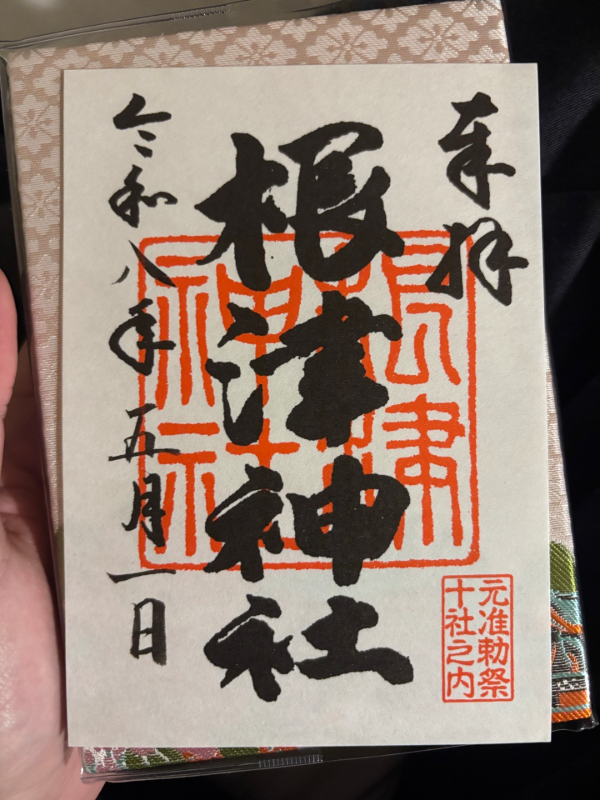 奉拝
根津神社
根津神社
元准勅祭
十社之内
令和八年五月一日